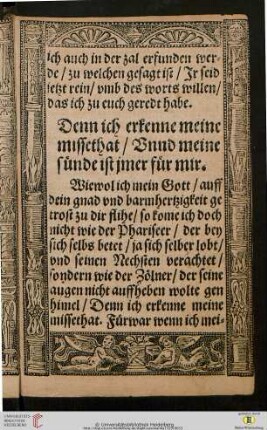 ich auch in der zal erfunden wer-
de / zu welchen gesagt ist / Jr seid
jetzt rein / vmb des worts willen /
das ich zu euch geredt habe.
Denn ich erkenne meine
missethat / Vnnd meine
sünde ist jmer für mir.
Wiewol ich mein Gott / auff
dein gnad vnd barmhertzigkeit ge
trost zu dir flihe / so kome ich doch
nicht wie der Phariseer / der bey
sich selbs betet / ja sich selber lobt /
vnd seinen Nechsten verachtet /
sondern wie der Zölner / der seine
augen nicht auffheben wolte gen
himel / Denn ich erkenne meine
missethat. Fürwar wenn ich mei-
© Universitätsbibliothek Heidelberg